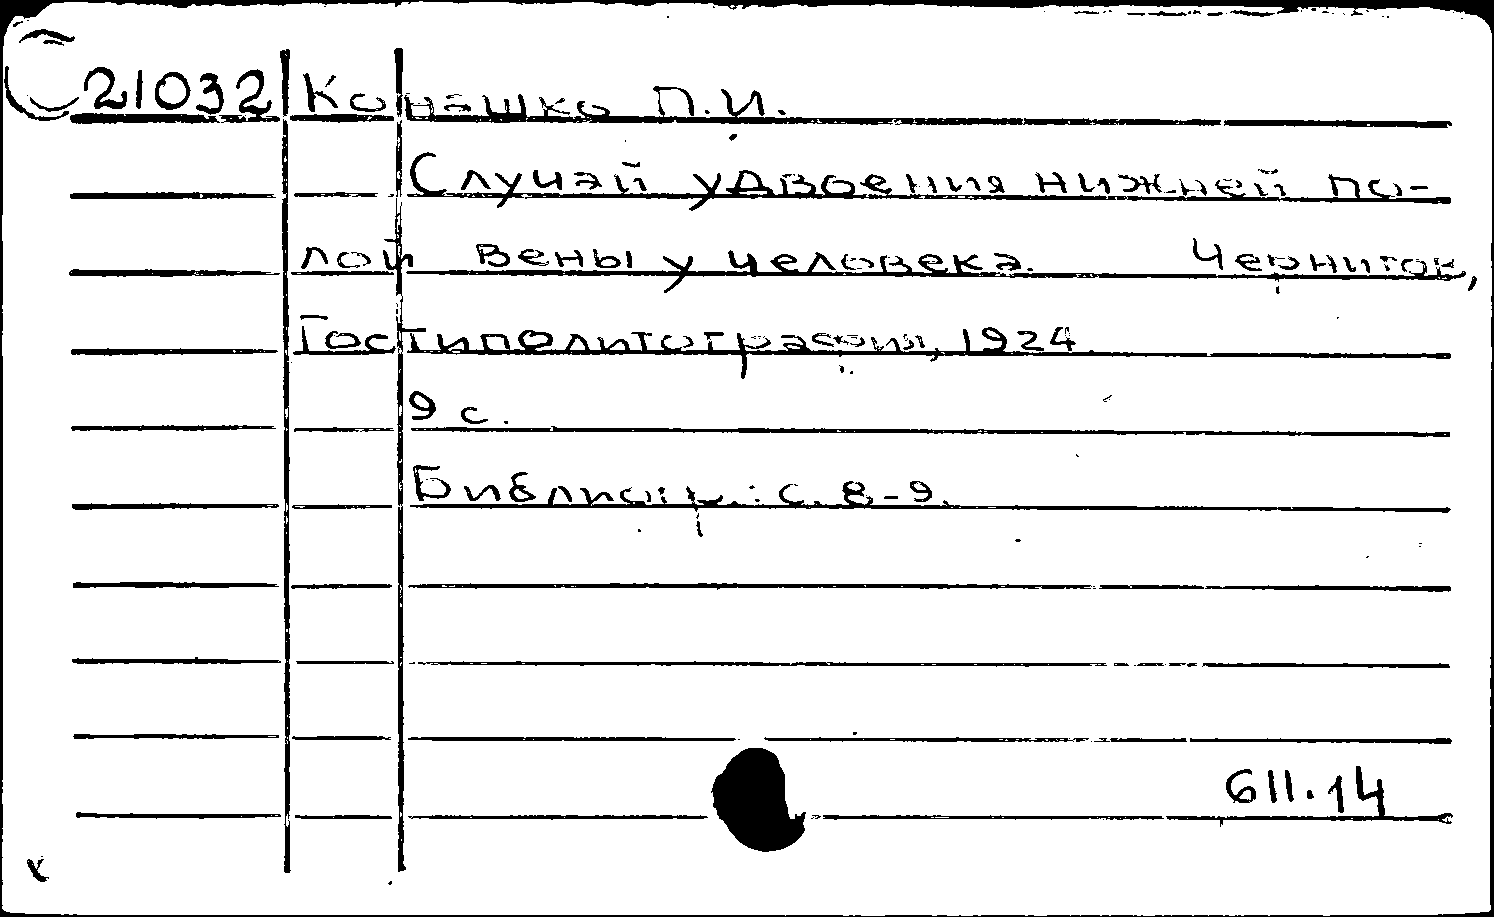 21032 Конашко П.И.
Случай удвоения нижней по-
лой вены у человека. Чернигов,
Гостиполитография, 1924.
9 с.
Библиогр.: с. 8-9.
611.14